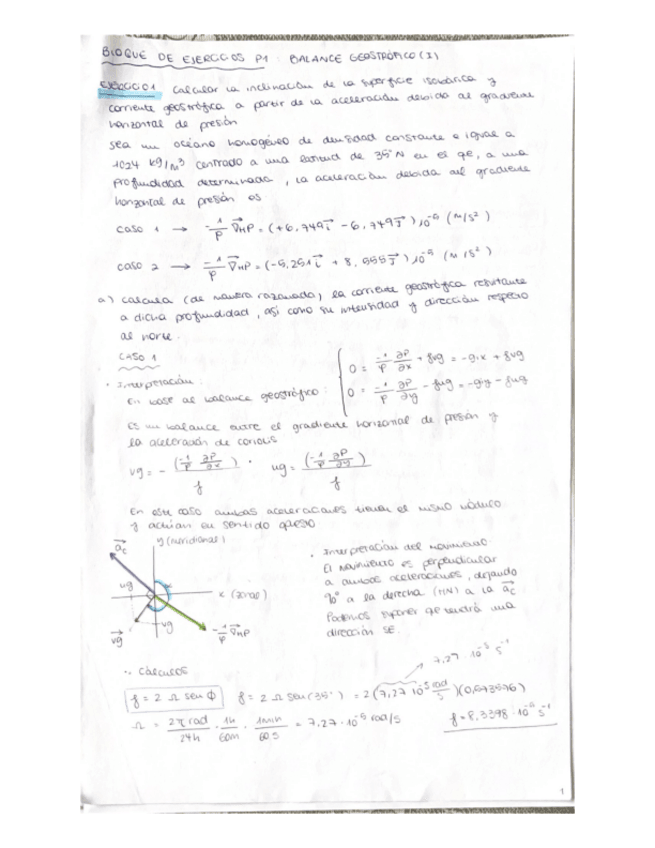 BLOQUE DE EJERCICIOS P1: BALANCE GEOSTRÓFICO (I)
EJERCICIO 1 Calcular la inclinación de la superficie isobárica y
corriente geostrófica a partir de la aceleración debida al gradiente
horizontal de presión
Sea un océano homogéneo de densidad constante e igual a
1024 kg/m³ centrado a una latitud de 35°N en el qe, a una
profundidad determinada, la aceleración debida al gradiente
horizontal de presión es
caso 1 → -1/ρ ∇HP = (+6,749i - 6,749j) 10⁻⁵ (m/s²)
caso 2 → -1/ρ ∇HP = (-5,251i + 8,555j) 10⁻⁵ (m/s²)
a) calcula (de manera razonada) la corriente geostrófica resultante
a dicha profundidad, así como su intensidad y dirección respecto
al norte.
CASO 1
• Interpretación:
En base al balance geostrófico:
0 = -1/ρ ∂P/∂x + fvg = -gix + fvg
0 = -1/ρ ∂P/∂y - fug = -giy - fug
Es un balance entre el gradiente horizontal de presión y
la aceleración de coriolis
vg = - (-1/ρ ∂P/∂x) / f . ug = (-1/ρ ∂P/∂y) / f
En este caso ambas aceleraciones tienen el mismo módulo
y actúan en sentido
ac
y (meridional)
x (zonal)
ug
vg
vg
-1/ρ ∇HP
• Interpretación del movimiento
El movimiento es perpendicular
a ambas aceleraciones, dejando
90° a la derecha (HN) a la ac
Podemos suponer qe tendrá una
dirección SE.
Cálculos
7,27 · 10⁻⁵ s⁻¹
f = 2 Ω sen ϕ f = 2 Ω sen(35°) = 2(7,27 10⁻⁵ rad/s)(0,573576)
Ω = 2π rad/24h · 1h/60m · 1min/60s = 7,27 · 10⁻⁵ rad/s
f = 8,3398 · 10⁻⁵ s⁻¹
1